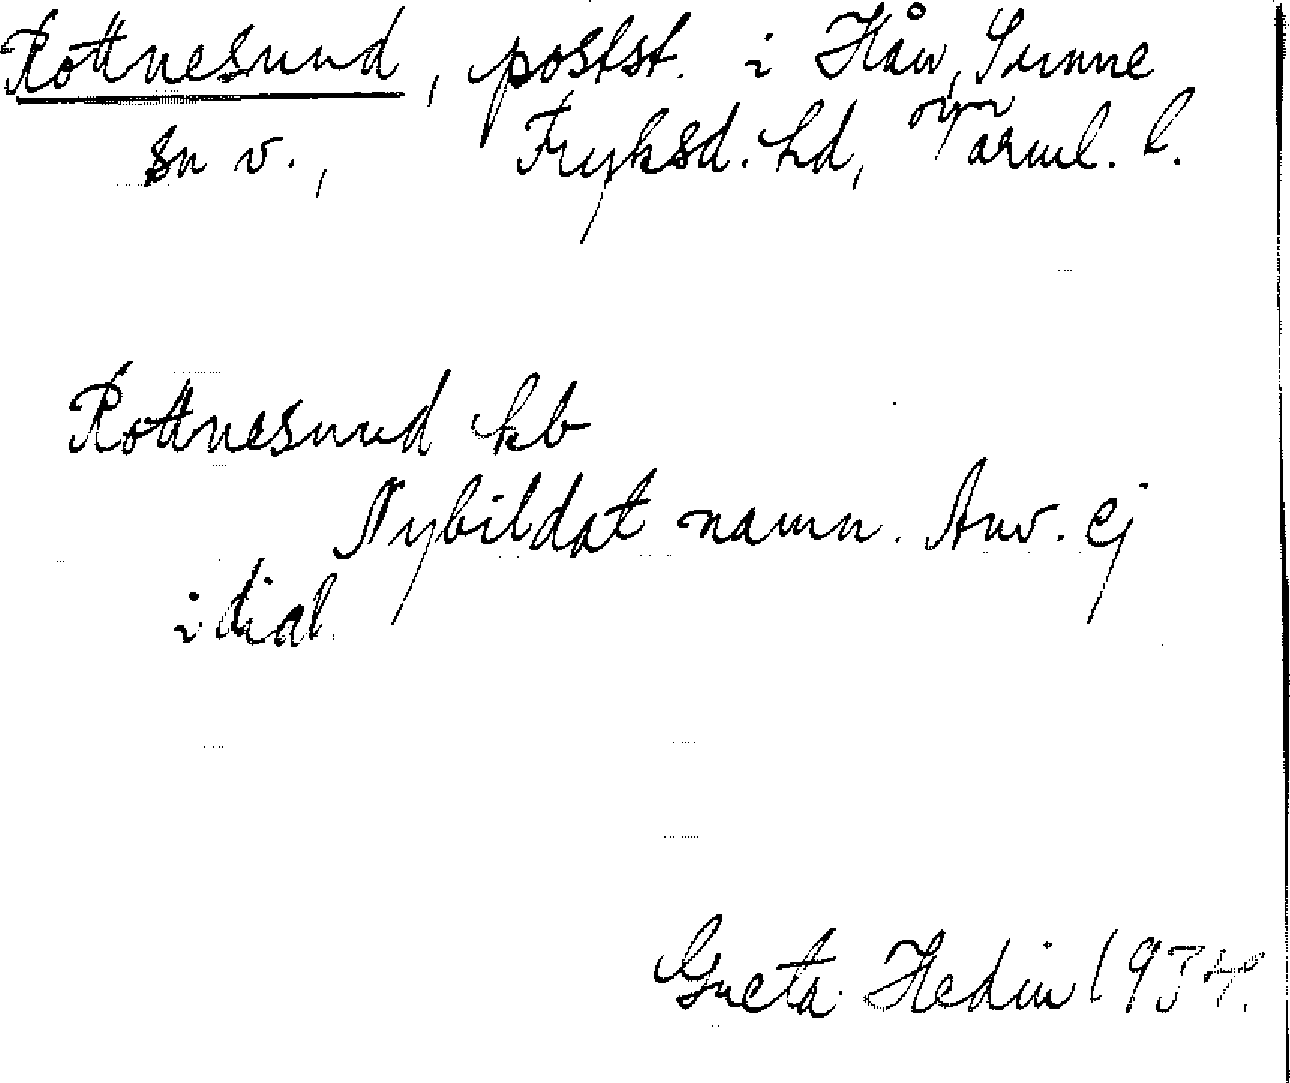 Rottnesund, postst. i Hån, Sunne
sn v., Fryksd. hd, Värml. l.
Rottnesund kb
Nybildat namn. Anv. ej
i dial.
Greta Hedin 1934.